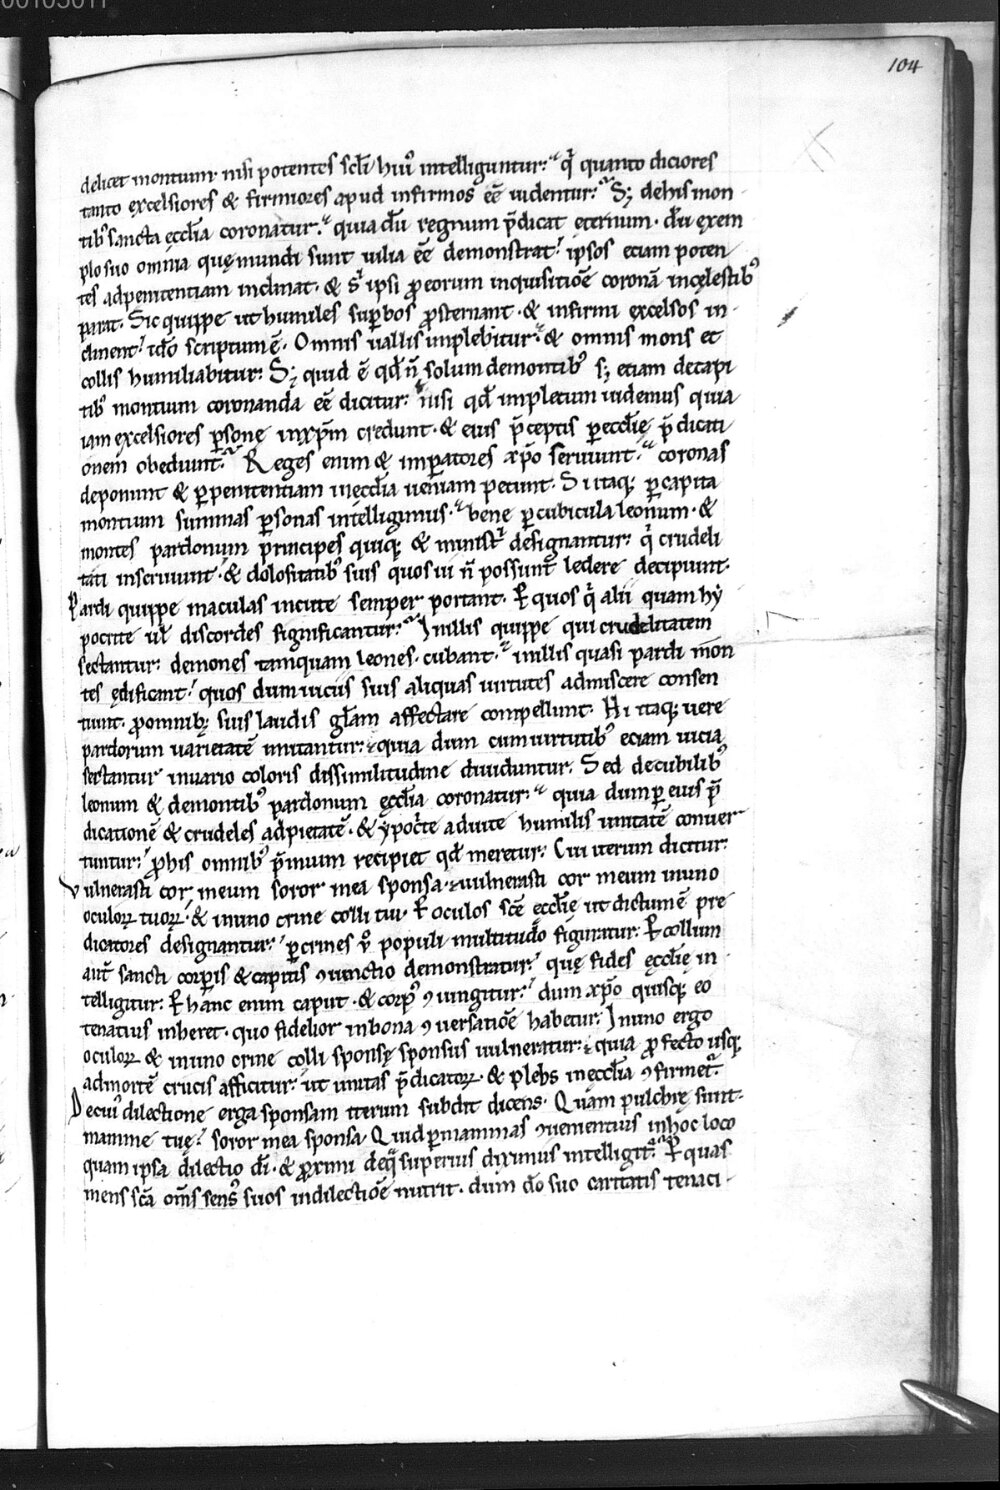 00105011
104
delicet montium· nisi potentes scłi huiꝰ intelliguntur: qͥ quanto diciores
tanto excelsiores & firmiores apud infirmos eē uidentur: Sꝫ dehis mon
tibꝰ sancta ęccłia coronatur: quia dū regnum p̄dicat eternum· dū exem
plo suo omnia quę mundi sunt uilia eē demonstrat: ipsos etiam poten
tes adpenitentiam inclinat· & sͥ ipsi ꝓeorum inquisitiōe coronā incęlestibꝰ
parat· Sic quippe ut humiles suꝑbos ꝓsternant· & infirmi excelsos in
clinent: idō scriptum ē· Omnis uallis implebitur: & omnis mons et
collis humiliabitur: Sꝫ quid ē qđ n̄ solum demontibꝰ sꝫ etiam decapi
tibꝰ montium coronanda eē dicitur: nisi qđ impletum uidemus quia
iam excelsiores ꝑsonę inxp̄m credunt· & eius p̄ceptis ꝑ ecclię p̄dicati
onem obediunt: Reges enim & imꝑatores xp̄o seruiunt: coronas
deponunt & ꝑpenitentiam inęccłia ueniam petunt· Si itaqꝫ ꝑcapita
montium summas ꝑsonas intelligimus: bene ꝑcubicula leonum· &
montes pardorum principes quiqꝫ & ministͥ designantur: qͥ crudeli
tati inseruiunt: & dolositatibꝰ suis quos ui n̄ possunt ledere decipiunt·
Pardi quippe maculas incute semper portant· Per quos qͥ alii quam hẏ
pocrite ul̄ discordes significantur: Inillis quippe qui crudelitatem
sectantur: demones tamquam leones· cubant: inillis quasi pardi mon
tes ędificant: quos dum uiciis suis aliquas uirtutes admiscere consen
tiunt· ꝓomnibꝫ suis laudis głam affectare compellunt· Hi itaqꝫ uere
pardorum uarietatē imitantur: quia dum cum uirtutibꝰ etiam uicia
sectantur inuario coloris dissimilitudine diuiduntur: Sed decubilibꝰ
leonum & demontibꝰ pardorum ęccłia coronatur: quia dum ꝑ eius p̄
dicationē & crudeles adpietatē· & ẏpocͥte aduite humilis unitatē conuer
tuntur: ꝓhis omnibꝰ p̄mium recipiet qđ meretur: Cui iterum dicitur:
Vulnerasti cor meum soror mea sponsa· uulnerasti cor meum inuno
oculoꝝ tuoꝝ: & inuno crine colli tui· Per oculos scē ęccłię ut dictum ē pre
dicatores designantur: ꝑ crines ů populi multitudo figuratur: Per collum
aut̄ sancti corꝑis & capitis ꝯiunctio demonstratur: quę fides ęccłię in
telligitur: Per hanc enim caput· & corpꝰ ꝯiungitur: dum xp̄o quisqꝫ eo
tenatius inheret· quo fidelior inbona ꝯuersatiōe habetur: Inuno ergo
oculoꝝ & inuno crine colli sponsę sponsus uulneratur: quia ꝓfecto usqꝫ
admortē crucis afficitur: ut unitas p̄dicatoꝝ· & plebs inęccłia ꝯfirmet:
Decuiꝰ dilectione erga sponsam iterum subdit dicens· Quam pulchrę sunt
mamme tuę: soror mea sponsa· Quid ꝑmammas ꝯuenientius inhoc loco
quam ipsa dilectio dī· & ꝓximi deqͣ superius diximus intelligit: Per quas
mens scā om̄s sensꝰ suos indilectiōe nutrit· dum dō suo caritatis tenaci